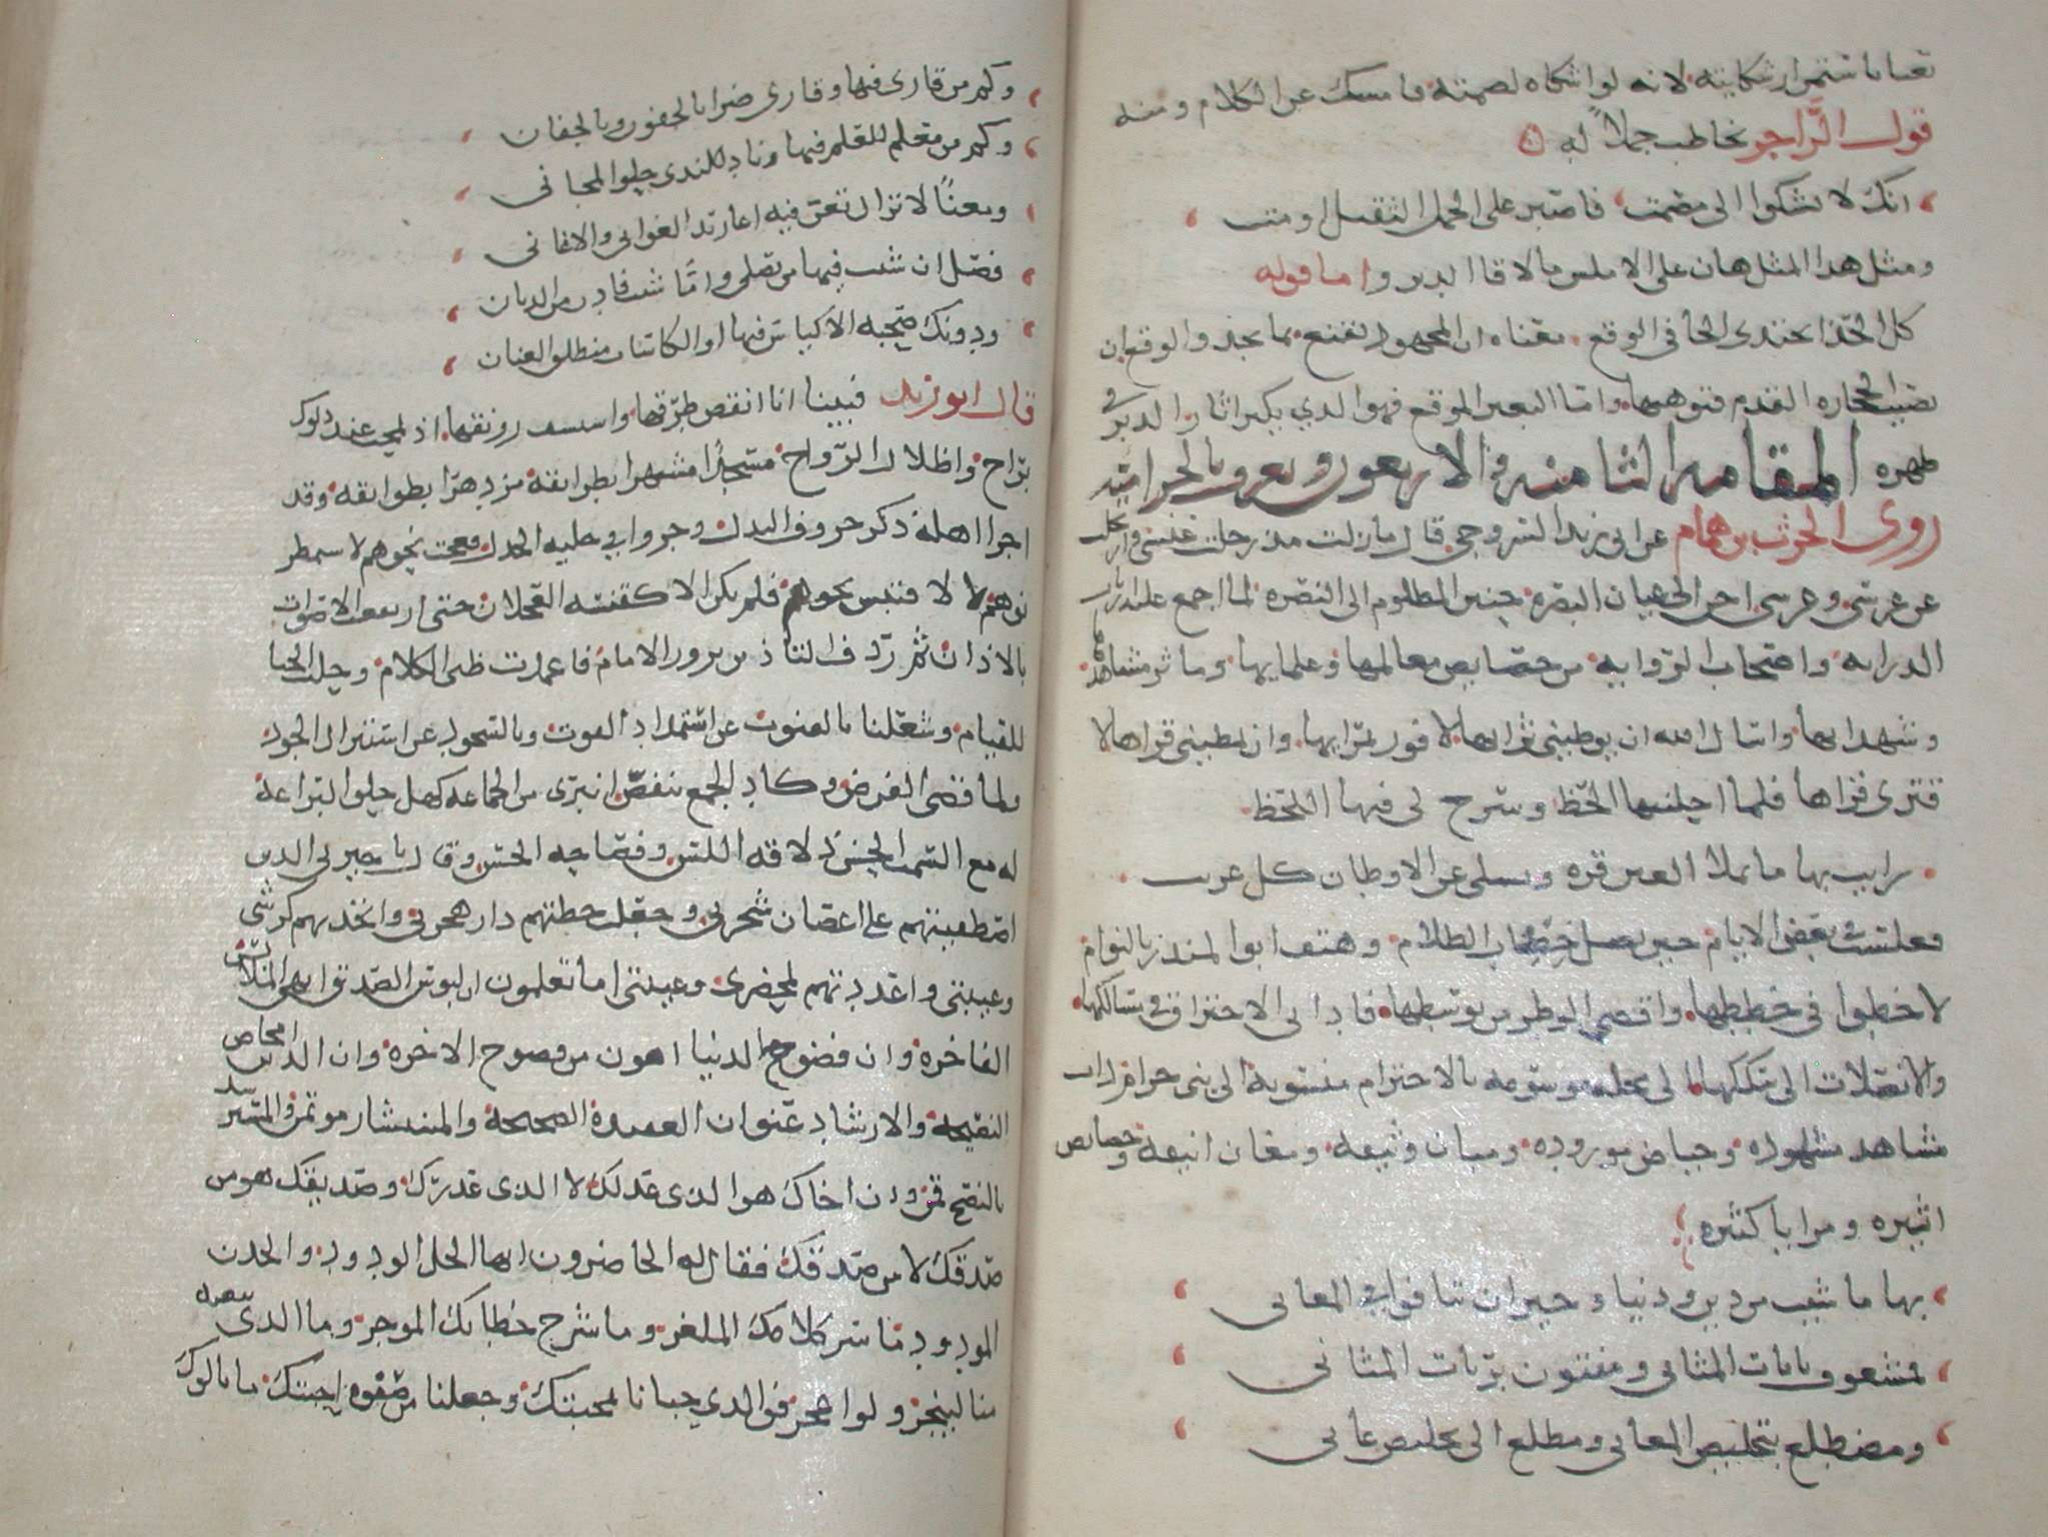 تعبا باستمرار شكايته لانه لو اشكاه لصمته فامسك عن الكلام ومنه
قول الراجز يخاطب جملا له
انك لا تشكوا الى مصمت فاصبر على الحمل الثقيل او مت
ومثل هذا المثل هان على الاملس ما لاقا الدبر واما قوله
كل الحذا يحتذى الحافى الوقع معناه ان المجهود يقنع بما يجد والوقع ان
تصيب الحجاره القدم فتوهيها واما البعير الموقع فهو الذي يكثر اثار الدبر في
ظهره المقامه الثامنه والاربعون وتعرف بالحراميه
روى الحرث بن همام عن ابي زيد السروجي قال ما زلت مذ رحلت عنسي وارتحلت
عن عرسي وغرسي احن الى عيان البصره حنين المظلوم الى النصره لما اجمع عليه ارباب
الدرايه واصحاب الروايه من خصايص معالمها وعلمايها وماثر مشاهدها
وشهدايها واسال الله ان يوطيني ثراها لافوز بمرآها وان يمطيني قراها لا
قترى قراها فلما احلنيها الحظ وسرح لي فيها اللحظ
رايت بها ما يملا العين قره ويسلي عن الاوطان كل غريب
فغلست في بعض الايام حين نصل خضاب الظلام وهتف ابو المنذر بالنوام
لاخطوا في خططها واقضي الوطر من توسطها فاداني الاختراق في مسالكها
والانصلات الى سككها الى محله موسومه بالاحترام منسوبة الى بني حرام ذات
مشاهد مشهوده وحياض موروده ومبان وثيقه ومغان انيقه وخصايص
اثيره ومزايا كثيره
بها ما شيت من دين ودنيا وجيران تنافوا في المعاني
فمشغوف بايات المثاني ومفتون برنات المثاني
ومضطلع بتلخيص المعاني ومطلع الى تخليص عاني
وكم من قارئ فيها وقاري اضرا بالجفون وبالجفان
وكم من معلم للعلم فيها وناد للندى حلو المجاني
ومغنا لا تزال تغن فيه اغاريد الغواني والاغاني
فصل ان شيت فيها من يصلي واما شيت فادن من الدنان
ودونك صحبه الاكياس فيها او الكاسات منطلق العنان
قال ابو زيد فبينا انا انفض طرقها واستشف رونقها اذ لمحت عند دلوك
براح واظلال الرواح مسجدا مشتهرا بطرائفه مزدهرا بطوائفه وقد
اجرا اهله ذكر حروف البدل وجروا في حلبه الجدل فعجت نحوهم لاستمطر
نوهم لا لاقتبس نحوهم فلم يكن الا كقبسه العجلان حتى ارتفعت الاصوات
بالاذان ثم ردف التاذين بروز الامام فاغمدت ظبى الكلام وحلت الحبا
للقيام وشغلنا بالقنوت عن استمداد القوت وبالسجود عن استنزال الجود
ولما قضي الفرض وكاد الجمع ينفض انبرى من الجماعه كهل حلو البراعة
له مع السمت الحسن ذلاقة اللسن وفصاحه الحسن وقال يا جيرتي الذين
اصطفيتهم على اغصان شجرتي وجعلت خطتهم دار هجرتي واتخذتهم كرشي
وعيبتي واعددتهم لمحضري وغيبتي اما تعلمون ان لبوس الصدق ابهى الملابس
الفاخره وان فضوح الدنيا اهون من فضوح الاخره وان الدين امحاض
النصيحه والارشاد عنوان العقيدة الصحيحة والمستشار موتمن والمسترشد
بالنصح قمن وان اخاك هو الذى عذلك لا الذى عذرك وصديقك هو من
صدقك لا من صدقك فقال له الحاضرون ايها الخل الودود والخدن
المودود ما سر كلامك الملغز وما شرح خطابك الموجز وما الذى تبغيه
منا لينجز ولو اعجز فوالذي حبانا بمحبتك وجعلنا من صفوه احبتك ما نالوك